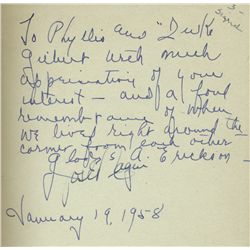 To Phyllis and "Duke
Gilbert with much
appreciation of your
interest - and a fond
remembrance of when
we lived right around the
corner from each other
Gladys A. Erickson -
January 19, 1958